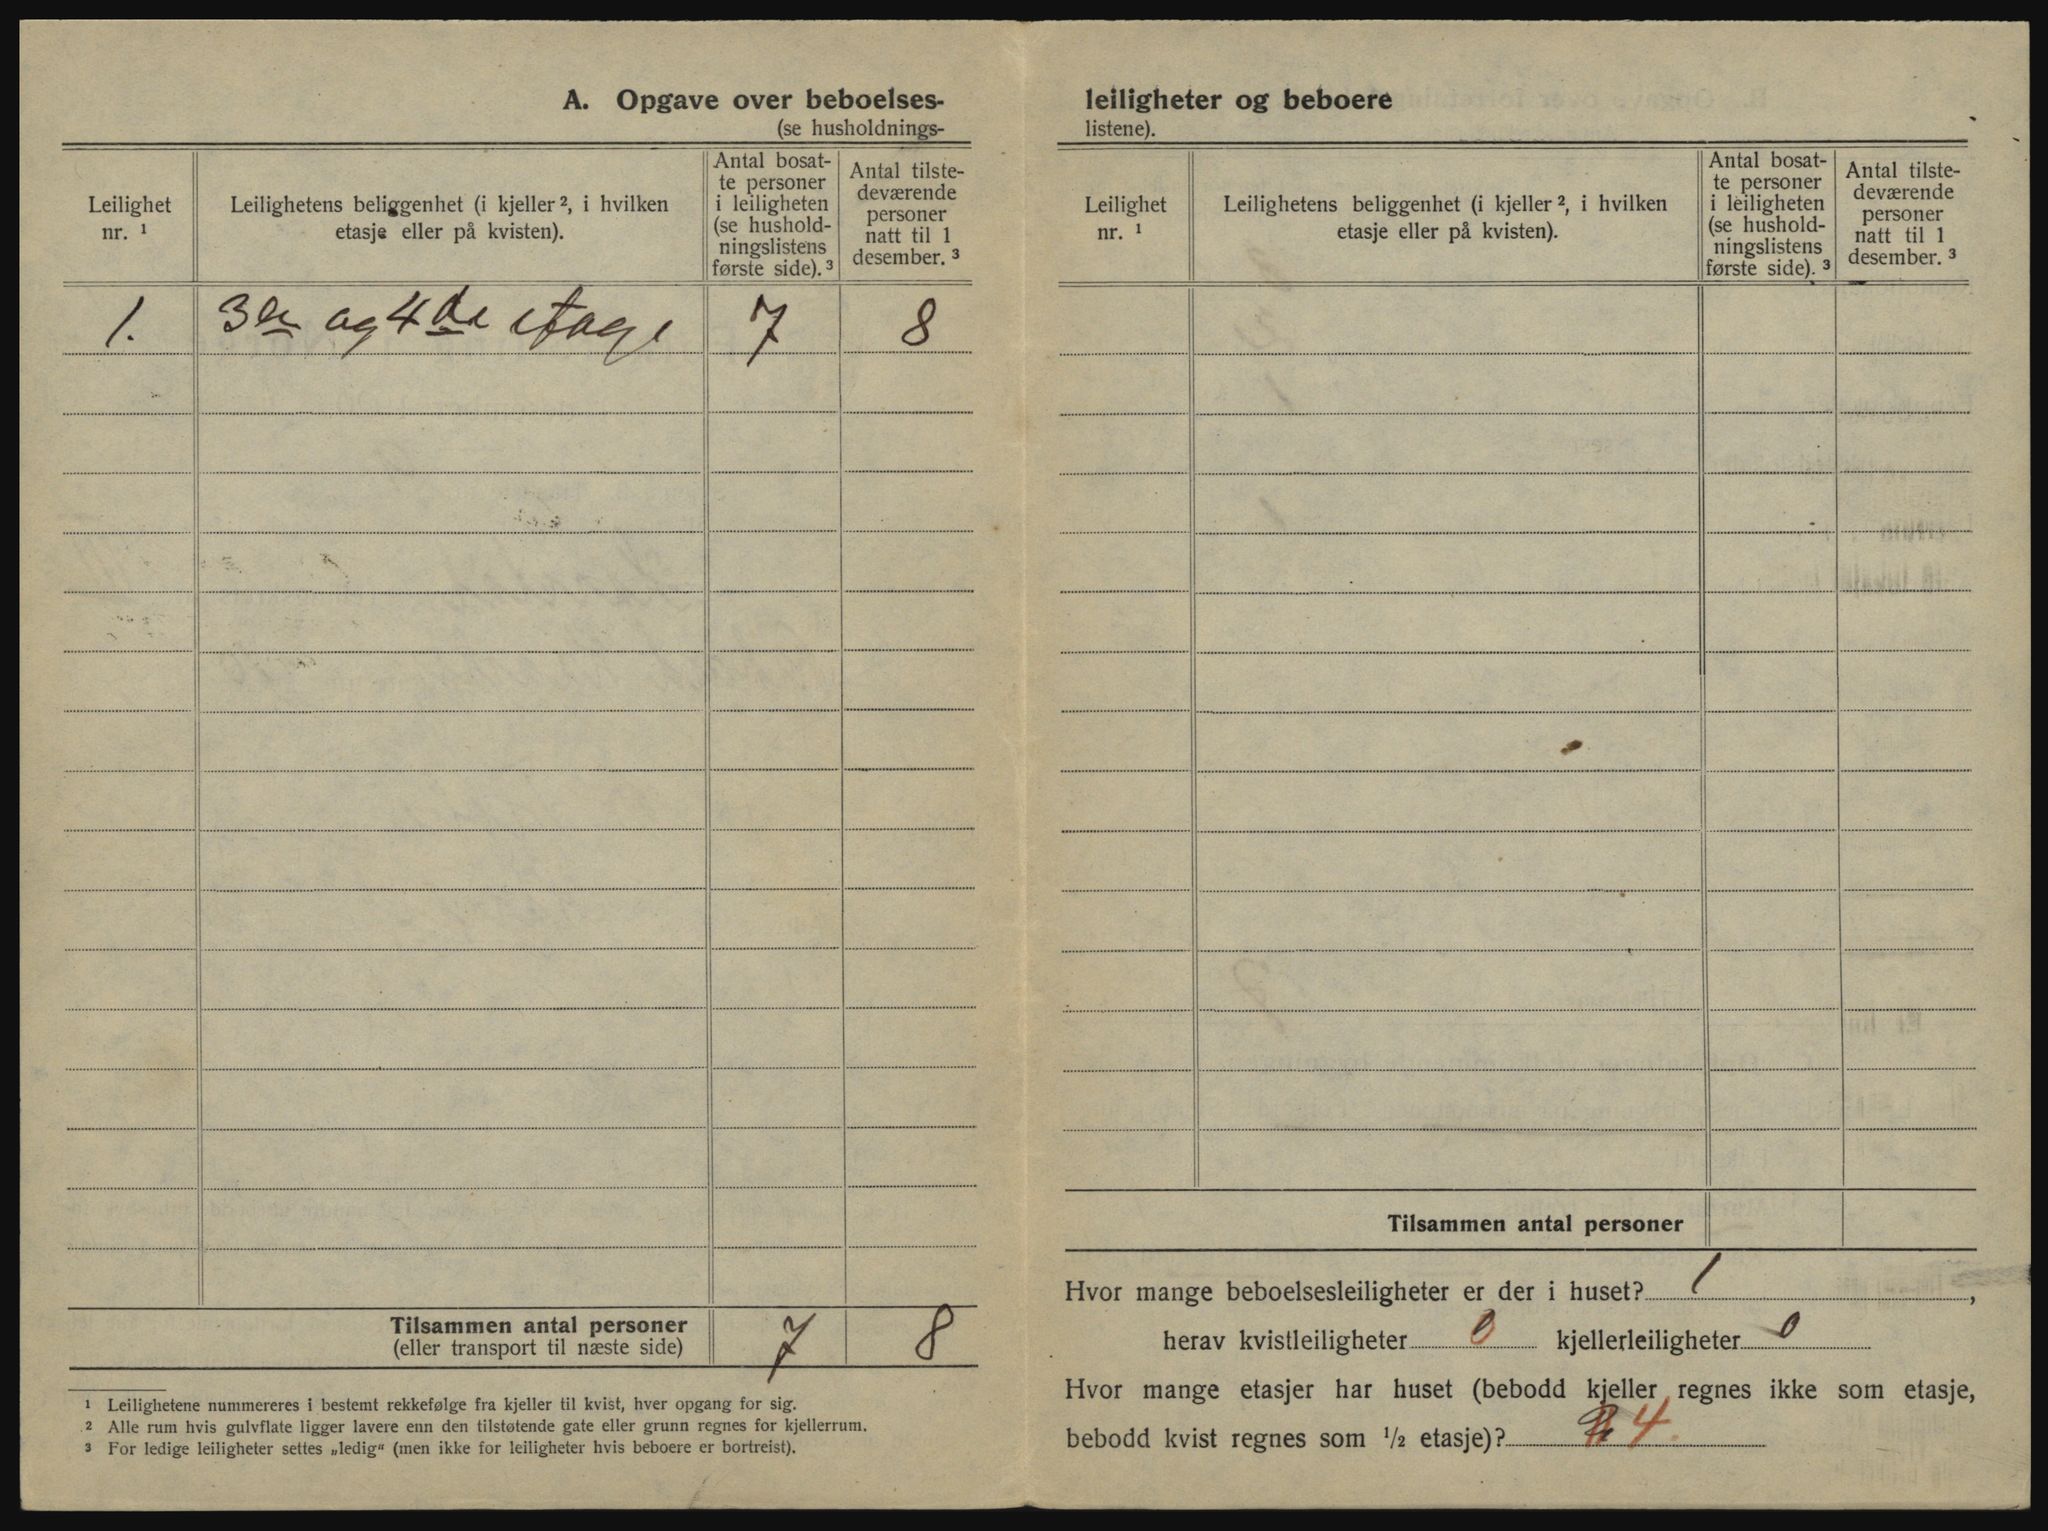 A. Opgave over beboelses-
(se husholdnings-
Leilighet
nr. ¹
Leilighetens beliggenhet (i kjeller ², i hvilken
etasje eller på kvisten).
Antal bosat-
te personer
i leiligheten
(se hushold-
ningslistens
første side). ³
Antal tilste-
deværende
personer
natt til 1
desember. ³
1. 3die og 4de etage 7 8
Tilsammen antal personer 7 8
(eller transport til næste side)
¹ Leilighetene nummereres i bestemt rekkefølge fra kjeller til kvist, hver opgang for sig.
² Alle rum hvis gulvflate ligger lavere enn den tilstøtende gate eller grunn regnes for kjellerrum.
³ For ledige leiligheter settes „ledig“ (men ikke for leiligheter hvis beboere er bortreist).
leiligheter og beboere
listene).
Leilighet
nr. ¹
Leilighetens beliggenhet (i kjeller ², i hvilken
etasje eller på kvisten).
Antal bosat-
te personer
i leiligheten
(se hushold-
ningslistens
første side). ³
Antal tilste-
deværende
personer
natt til 1
desember. ³
Tilsammen antal personer
Hvor mange beboelsesleiligheter er der i huset? 1,
herav kvistleiligheter 0 kjellerleiligheter 0
Hvor mange etasjer har huset (bebodd kjeller regnes ikke som etasje,
bebodd kvist regnes som ½ etasje)? 4.